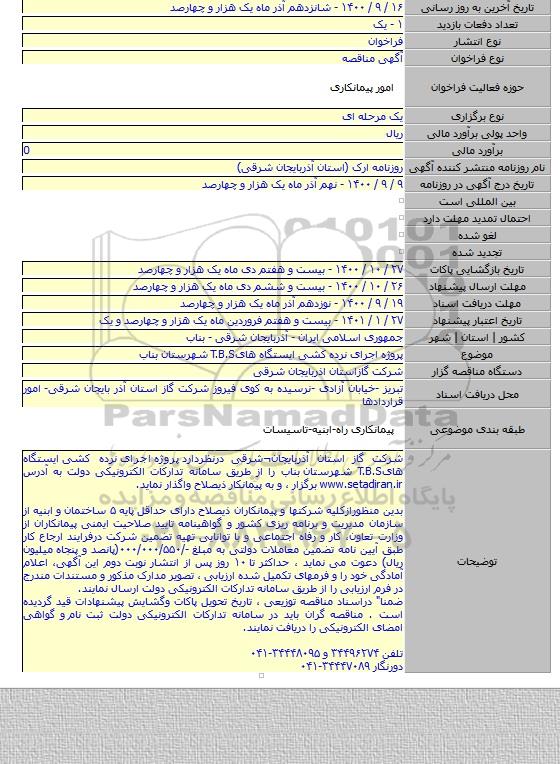 تاریخ آخرین به روز رسانی ۱۶ / ۹ / ۱۴۰۰ - شانزدهم آذر ماه یک هزار و چهارصد
تعداد دفعات بازدید ۱ - یک
نوع انتشار فراخوان
نوع فراخوان آگهی مناقصه
حوزه فعالیت فراخوان امور پیمانکاری
نوع برگزاری یک مرحله ای
واحد پولی برآورد مالی ریال
برآورد مالی 0
نام روزنامه منتشر کننده آگهی روزنامه ارک (استان آذربایجان شرقی)
تاریخ درج آگهی در روزنامه ۹ / ۹ / ۱۴۰۰ - نهم آذر ماه یک هزار و چهارصد
بین المللی است
احتمال تمدید مهلت دارد
لغو شده
تجدید شده
تاریخ بازگشایی پاکات ۲۷ / ۱۰ / ۱۴۰۰ - بیست و هفتم دی ماه یک هزار و چهارصد
مهلت ارسال پیشنهاد ۲۶ / ۱۰ / ۱۴۰۰ - بیست و ششم دی ماه یک هزار و چهارصد
مهلت دریافت اسناد ۱۹ / ۹ / ۱۴۰۰ - نوزدهم آذر ماه یک هزار و چهارصد
تاریخ اعتبار پیشنهاد ۲۷ / ۱ / ۱۴۰۱ - بیست و هفتم فروردین ماه یک هزار و چهارصد و یک
کشور | استان | شهر جمهوری اسلامی ایران - آذربایجان شرقی - بناب
موضوع پروژه اجرای نرده کشی ایستگاه هایT.B.S شهرستان بناب
دستگاه مناقصه گزار شرکت گازاستان اذربایجان شرقی
محل دریافت اسناد تبریز -خیابان آزادی -نرسیده به کوی فیروز شرکت گاز استان آذر بایجان شرقی- امور
قراردادها
طبقه بندی موضوعی پیمانکاری راه-ابنیه-تاسیسات
ParsNamadData
پایگاه اطلاع رسانی مناقصه و مزایده
توضیحات
شرکت گاز استان آذربایجان¬شرقی درنظردارد پروژه اجرای نرده کشی ایستگاه
هایT.B.S شهرستان بناب را از طریق سامانه تدارکات الکترونیکی دولت به آدرس
www.setadiran.ir برگزار ، و به پیمانکار ذیصلاح واگذار نماید.
بدین منظورازکلیه شرکتها و پیمانکاران ذیصلاح دارای حداقل پایه ۵ ساختمان و ابنیه از
سازمان مدیریت و برنامه ریزی کشور و گواهینامه تایید صلاحیت ایمنی پیمانکاران از
وزارت تعاون کار و رفاه اجتماعی و با توانایی تهیه تضمین شرکت درفرایند ارجاع کار
طبق آیین نامه تضمین معاملات دولتی به مبلغ -/۰۰۰/۰۰۰/۵۵۰(پانصد و پنجاه میلیون
ریال) دعوت می نماید ، حداکثر تا ۱۰ روز پس از انتشار نوبت دوم این آگهی، اعلام
آمادگی خود را و فرمهای تکمیل شده ارزیابی ، تصویر مدارک مذکور و مستندات مندرج
در فرم ارزیابی را از طریق سامانه تدارکات الکترونیکی دولت ارسال نمایند.
ضمنا" دراسناد مناقصه توزیعی ، تاریخ تحویل پاکات وگشایش پیشنهادات قید گردیده
است . مناقصه گران باید در سامانه تدارکات الکترونیکی دولت ثبت نام و گواهی
امضای الکترونیکی را دریافت نمایند.
تلفن ۳۴۴۹۶۲۷۴ و ۳۴۴۴۸۰۹۵-۰۴۱
دورنگار ۳۴۴۴۷۰۸۹-۰۴۱